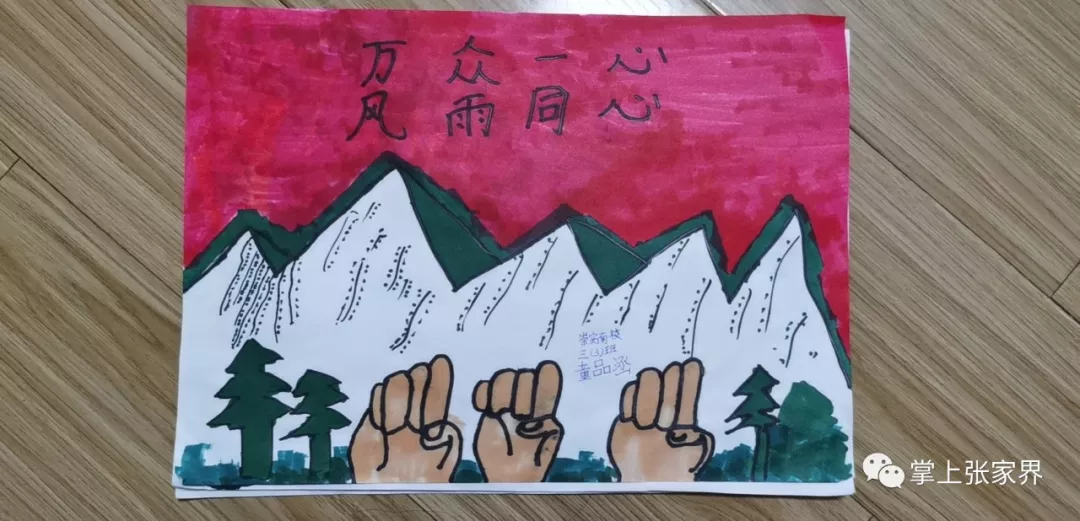 万众一心
风雨同心
崇实南校
三(3)班
童品丞
掌上张家界